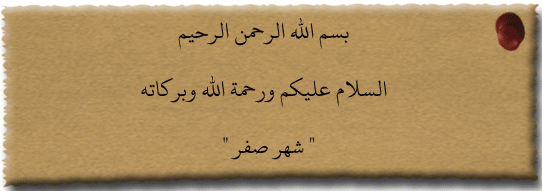 بسم الله الرحمن الرحيم
السلام عليكم ورحمة الله وبركاته
" شهر صفر "